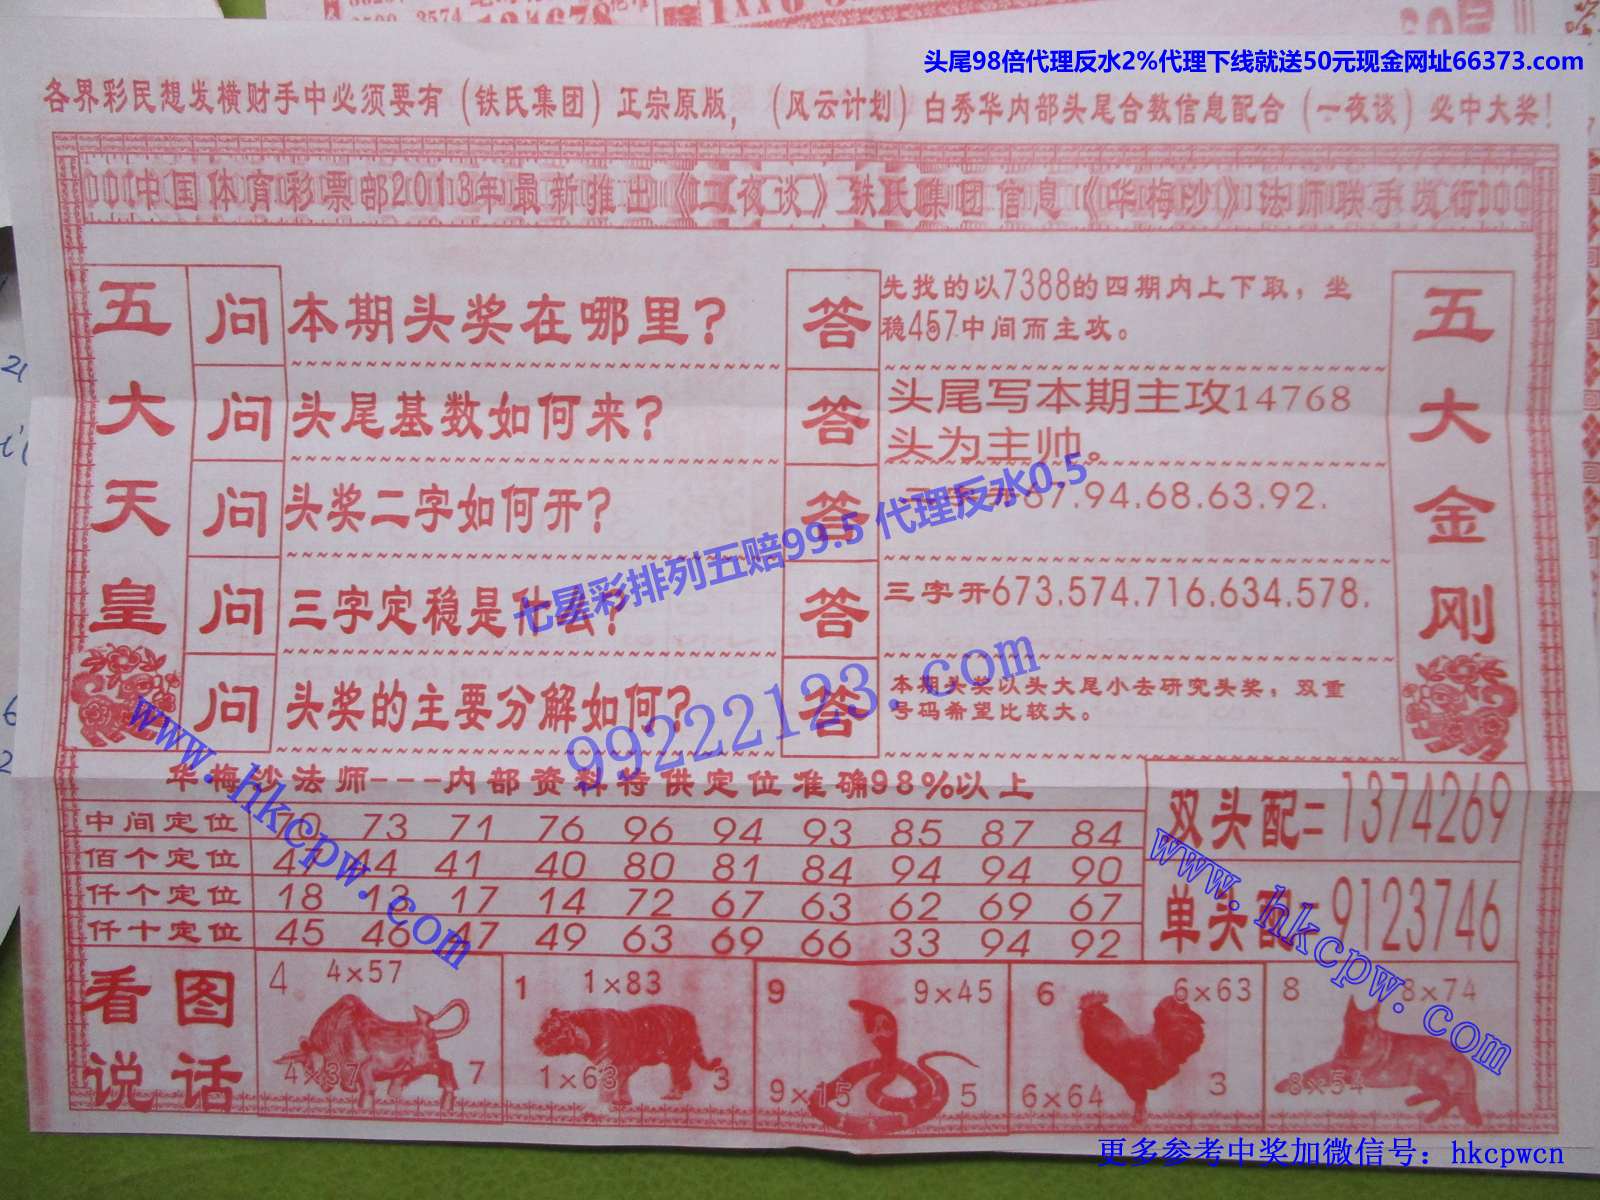 头尾98倍代理反水2%代理下线就送50元现金网址66373.com
各界彩民想发横财手中必须要有（铁氏集团）正宗原版，（风云计划）白秀华内部头尾合数信息配合（一夜谈）必中大奖！
中国体育彩票部2013年最新推出《二夜谈》铁氏集团信息《华梅沙》法师联手发行
五大天皇
问 本期头奖在哪里？
答 先找的以7388的四期内上下取，坐
稳457中间而主攻。
问 头尾基数如何来？
答 头尾写本期主攻14768
头为主帅。
问 头奖二字如何开？
答 67.94.68.63.92.
问 三字定稳是什么？
答 三字开673.574.716.634.578.
问 头奖的主要分解如何？
答 本期头奖以头大尾小去研究头奖，双重
号码希望比较大。
五大金刚
七星彩排列五赔99.5 代理反水0.5
99222123.com
www.hkcpw.com
华梅沙法师---内部资料特供定位准确98%以上
中间定位 70 73 71 76 96 94 93 85 87 84
佰个定位 47 44 41 40 80 81 84 94 94 90
仟个定位 18 13 17 14 72 67 63 62 69 67
仟十定位 45 46 47 49 63 69 66 33 94 92
双头配=1374269
单头配=9123746
www.hkcpw.com
看图
说话
4 4×57
4×37 7
1 1×83
1×63 3
9 9×45
9×15 5
6 6×63
6×64 3
8 8×74
8×54
更多参考中奖加微信号：hkcpwcn